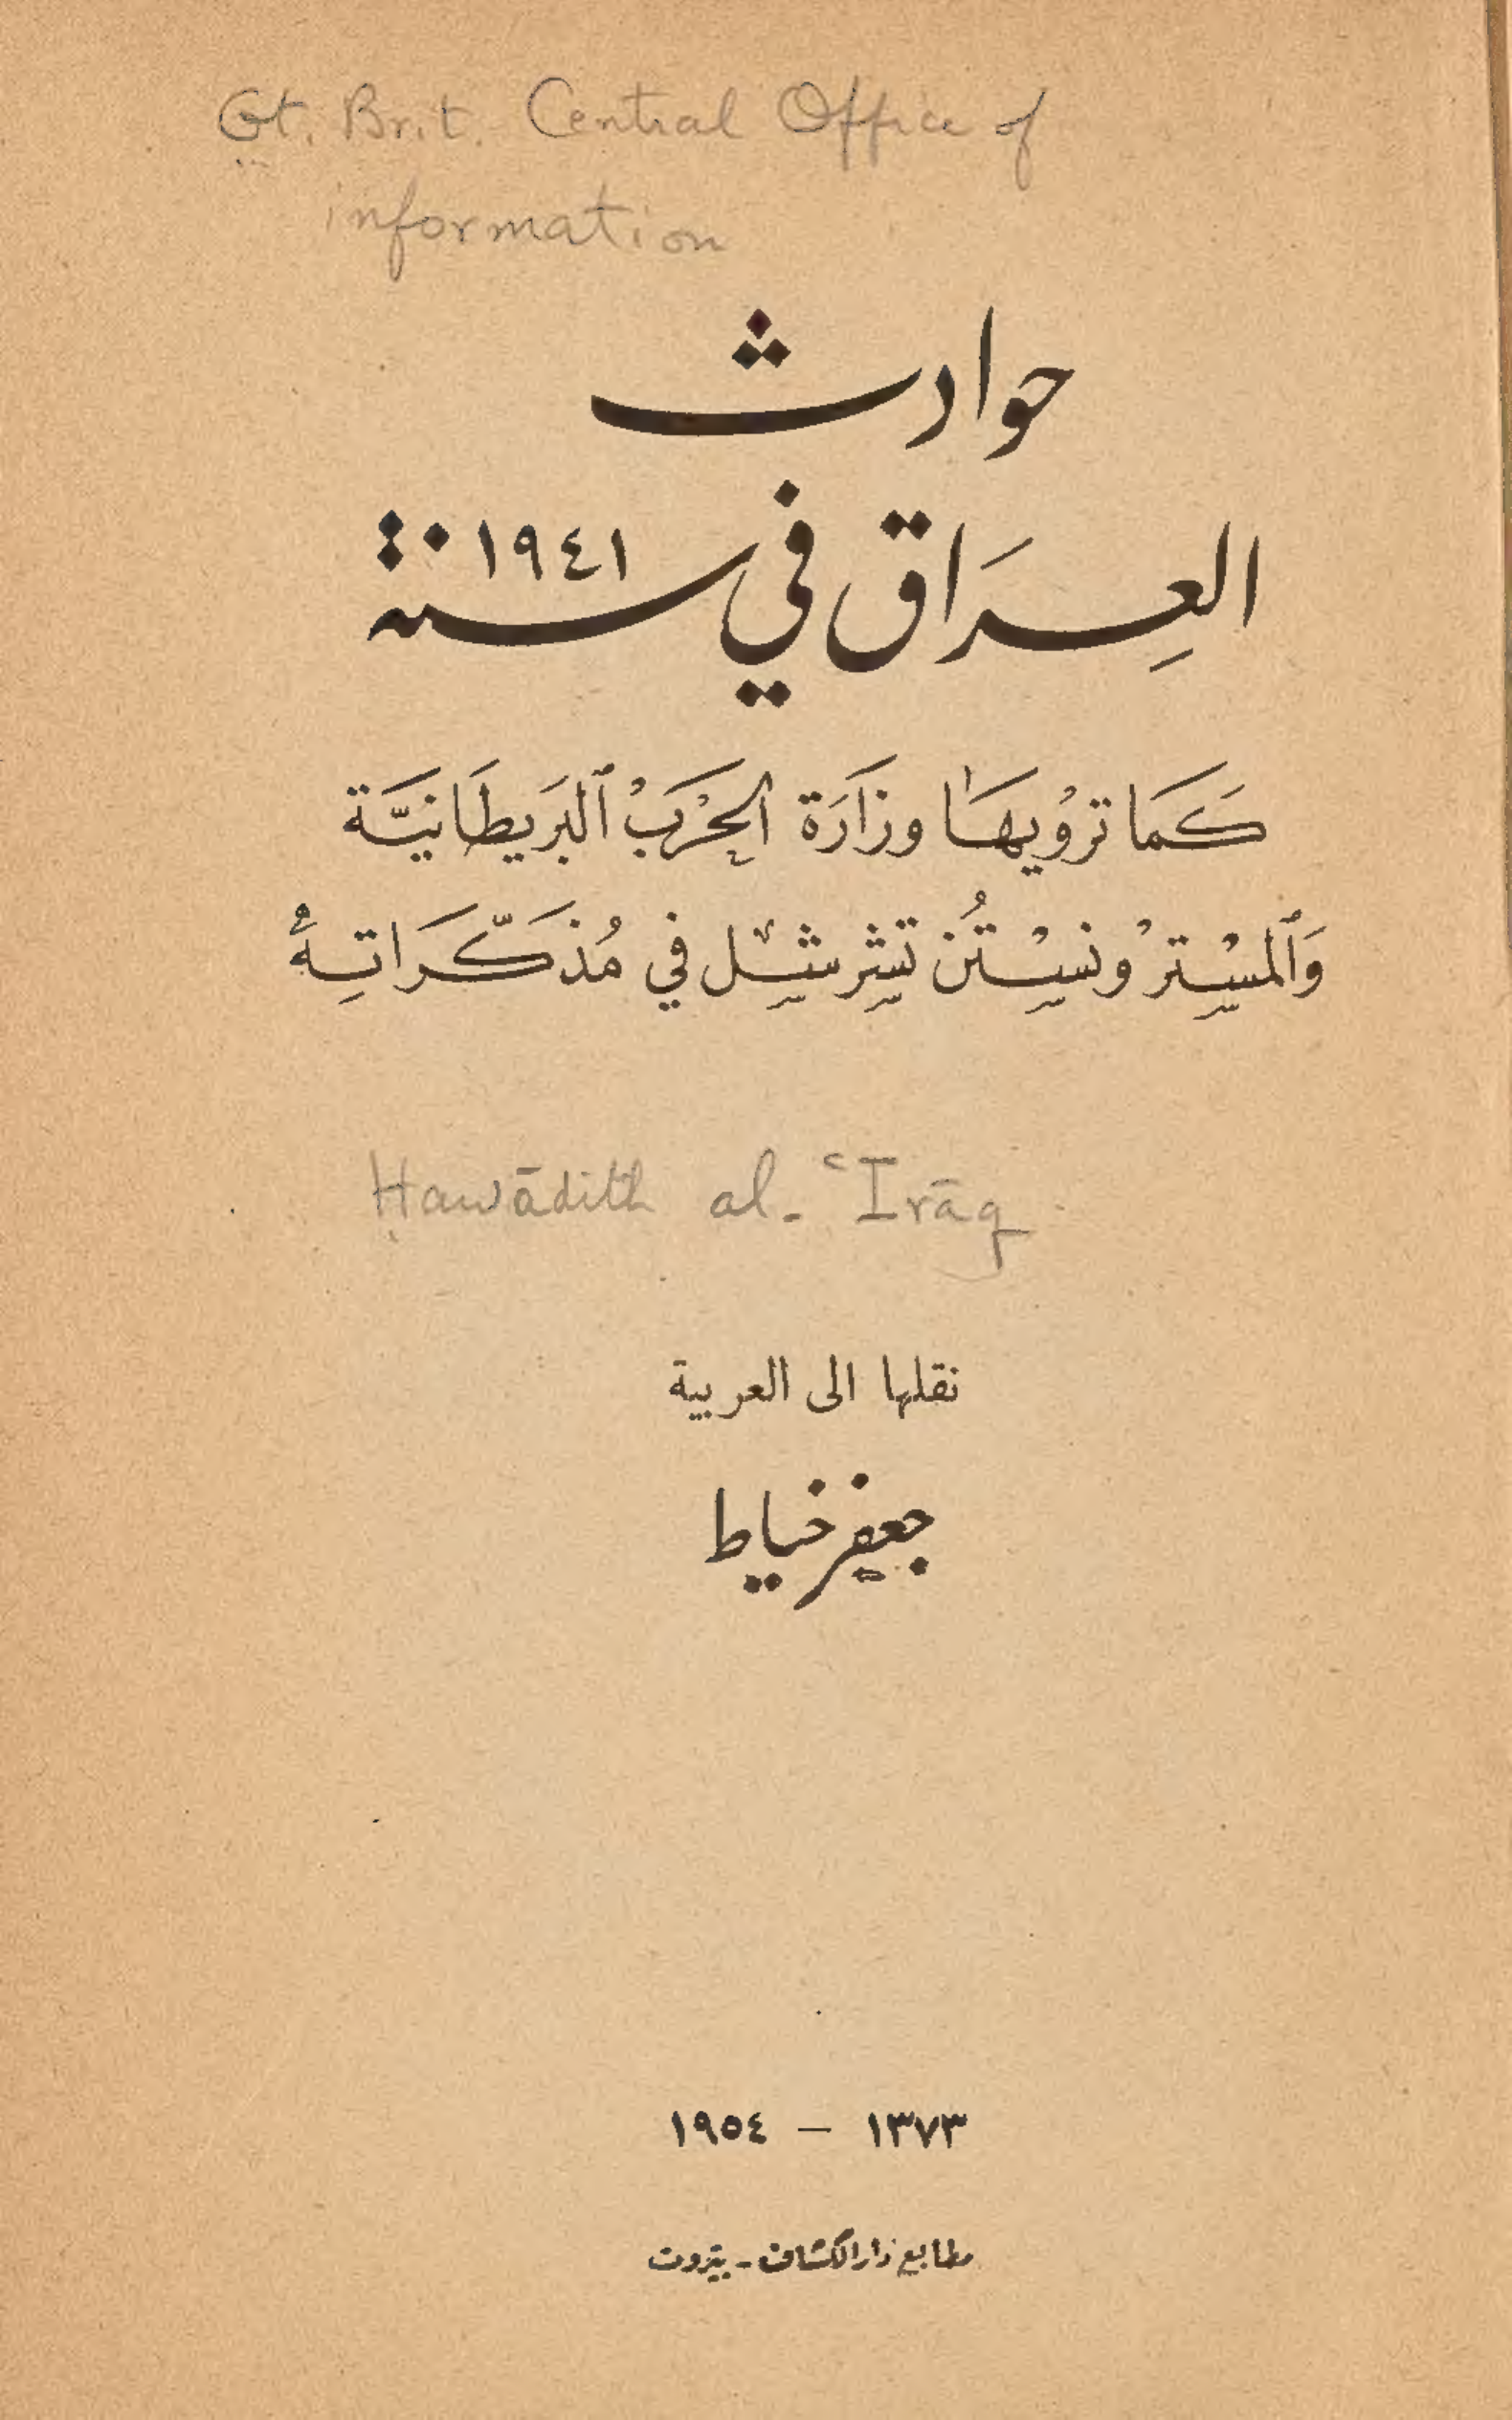 Gt. Brit. Central Office of
information
حوادث
العِرَاق في سنة ١٩٤١
كَمَا ترْوْيهَا وزَارَة الحِرْبَ ٱلبَريطَانيَّة
وَٱلمسْتِرْ ونسِْتُن تشِرشِل في مُذكَّرَاتِهُ
Ḥawādith al-ʿIrāq
نقلها الى العربية
جعفر خياط
١٣٧٣ — ١٩٥٤
مطابع دار الكشاف - بيروت